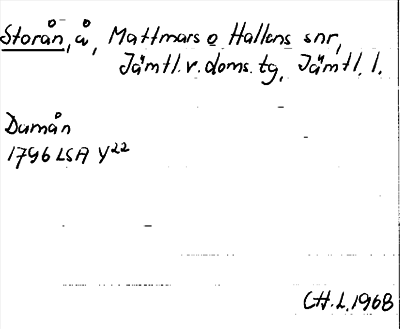 Storån, å, Mattmars o Hallens snr,
Jämtl. v. doms. tg, Jämtl. l.
Dumån
1796 LSA Y22
CH.L. 1968